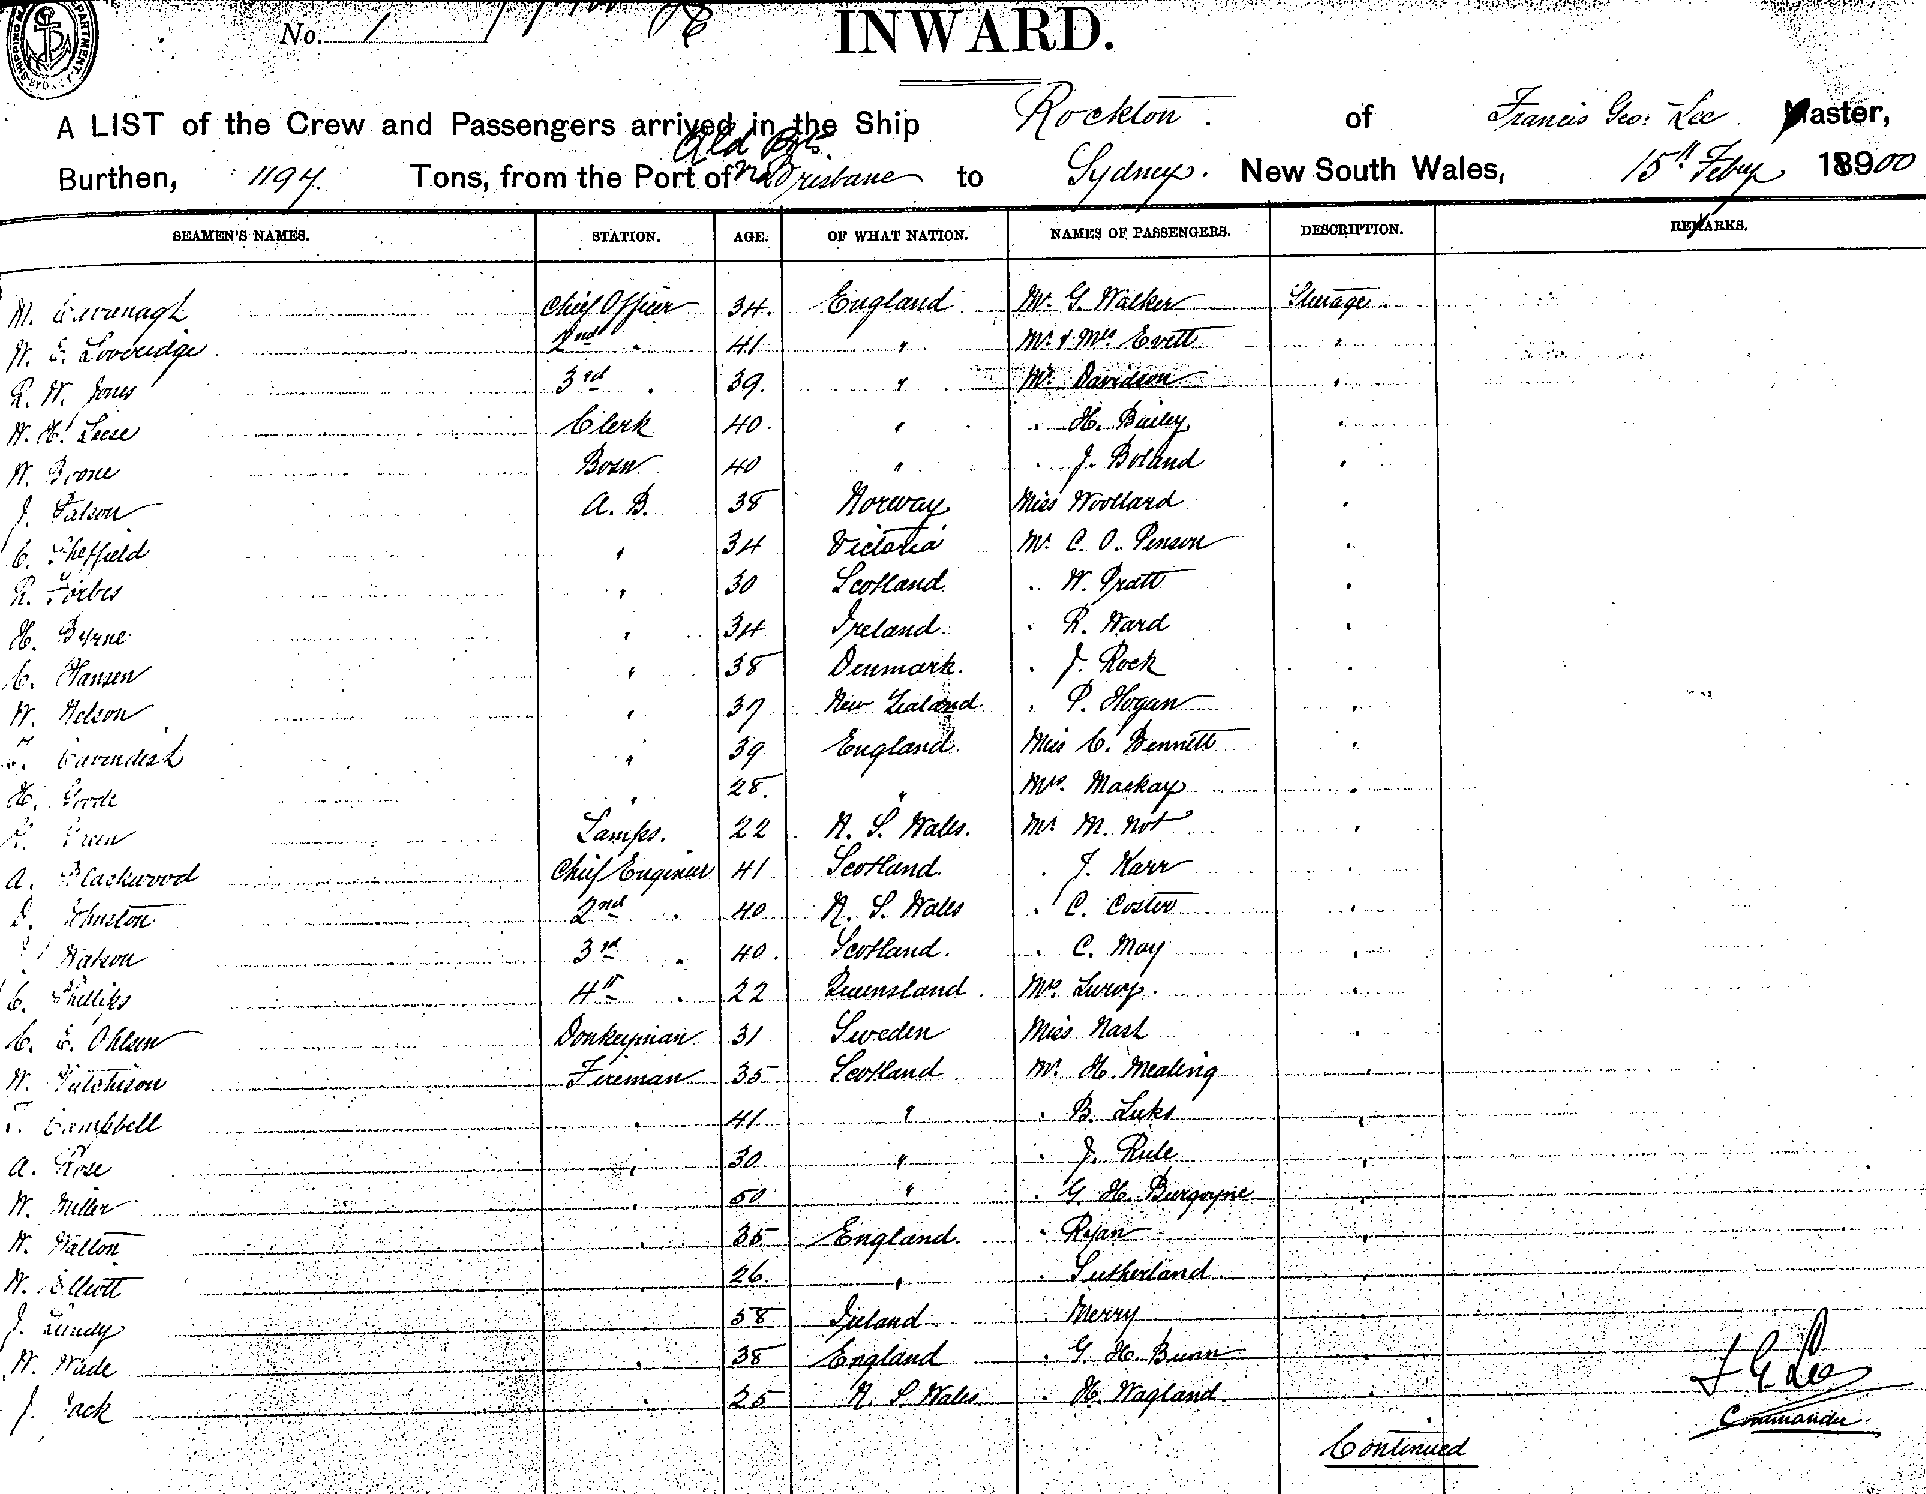 No. 1
INWARD.
A LIST of the Crew and Passengers arrived in the Ship Rockton. of Francis Geo. Lee Master,
Burthen, 1194. Tons, from the Port of Brisbane to Sydney. New South Wales, 15th Feby 18900
SEAMEN'S NAMES. STATION. AGE. OF WHAT NATION. NAMES OF PASSENGERS. DESCRIPTION. REMARKS.
M. Cavenagh Chief Officer 34. England Mr. G. Walker Steerage
W. E. Loveridge 2nd " 41 " Mr. & Mrs Evett "
R. W. Jones 3rd " 39. " Mr. Davidson "
W. H. Leese Clerk 40. " " H. Bailey "
W. Boone Bosn 40 " " J. Boland "
J. Palson A. B. 38 Norway Miss Woollard "
C. Sheffield " 34 Victoria Mr. C. O. Penson "
R. Forbes " 30 Scotland. " W. Pratt "
H. Byrne " 34 Ireland. " R. Ward "
C. Hansen " 38 Denmark. " J. Rock "
W. Nelson " 37 New Zealand. " P. Hogan "
Cavendish " 39 England. Miss C. Bennett "
H. Goode " 28. " Mrs. Mackay "
Green Lamps. 22 N. S. Wales. Mr M. Not "
A. Blackwood Chief Engineer 41 Scotland. " J. Karr "
D. Johnston 2nd " 40 N. S. Wales " C. Coster "
Watson 3rd " 40. Scotland. " C. May "
C. Phillips 4th " 22 Queensland. Mrs. "
C. E. Ohlsen Donkeyman 31 Sweden Miss Nash "
W. Hutchison Fireman 35 Scotland Mr. H. Mealing "
Campbell " 41 " " B. Luks "
A. Rose " 30 " " J. Rule "
W. Miller " 50 " " G. H. Burgoyne "
W. Walton " 35 England. " Ryan "
W. Elliott " 26 " " Sutherland "
J. Lundy " 58 Ireland " Merry "
W. Wade " 38 England " G. H. Bunn "
J. Jack " 25 N. S. Wales " H. Wagland "
F G Lee
Commander.
Continued